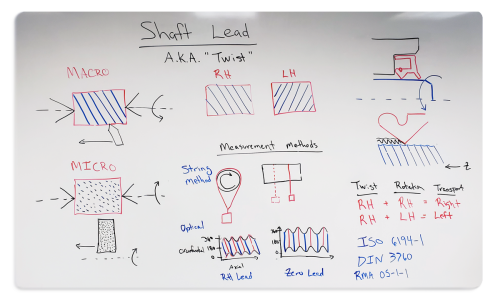 Shaft Lead
A.K.A. "Twist"
MACRO
RH
LH
MICRO
Measurement methods
String
method
Optical
360°
Circumferential 180
0
Axial
RH Lead
360°
180
0
Zero Lead
Z
Twist Rotation Transport
RH + RH = Right
RH + LH = Left
ISO 6194-1
DIN 3760
RMA OS-1-1